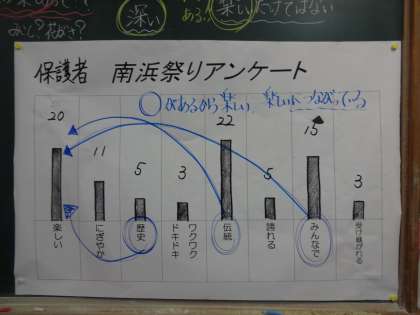 深い
だけではない
保護者 南浜祭りアンケート
○があるから楽しい 楽しいにつながっている
20 11 5 3 22 5 15 3
楽しい
にぎやか
歴史
ワクワク
ドキドキ
伝統
誇れる
みんなで
受け継がれる